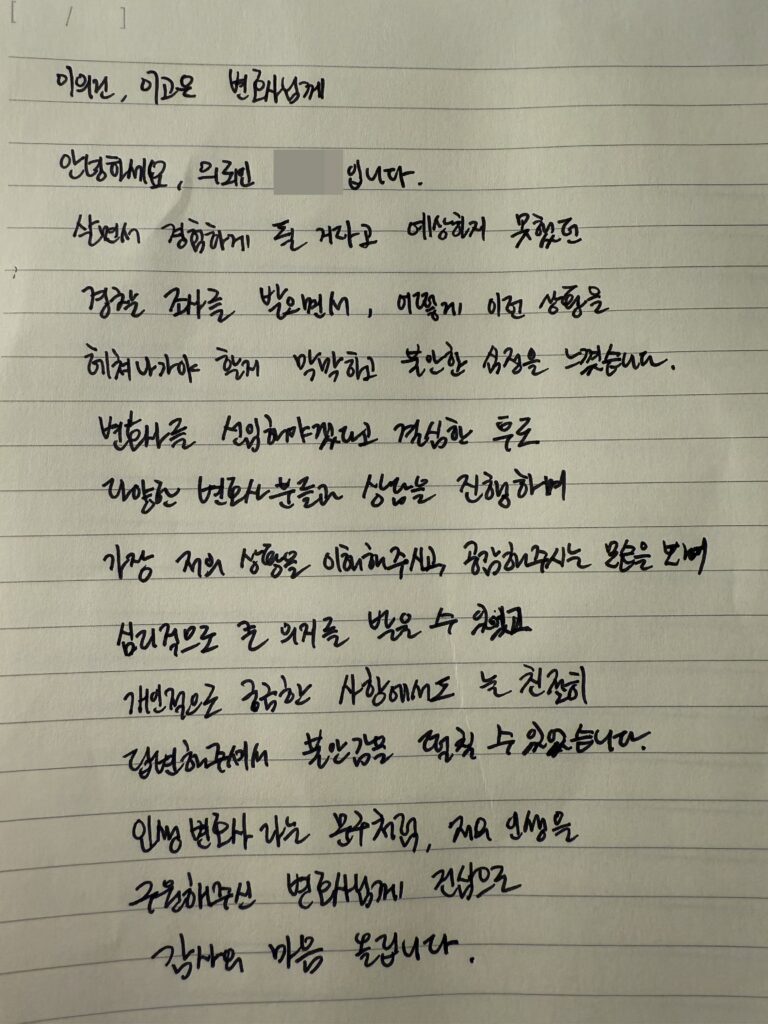 [ / ]
이의진, 이고은 변호사님께
안녕하세요, 의뢰인 입니다.
살면서 경험하게 될 거라고 예상하지 못했던
경찰 조사를 받으면서, 어떻게 이런 상황을
헤쳐나가야 할지 막막하고 불안한 심정을 느꼈습니다.
변호사를 선임해야겠다고 결심한 후로
다양한 변호사분들과 상담을 진행하며
가장 저의 상황을 이해해주시고, 공감해주시는 모습을 보며
심리적으로 큰 의지를 받을 수 있었고
개인적으로 궁금한 사항에서도 늘 친절히
답변해주셔서 불안감을 떨칠 수 있었습니다.
인생 변호사 라는 문구처럼, 저의 인생을
구원해주신 변호사님께 진심으로
감사의 마음 올립니다.